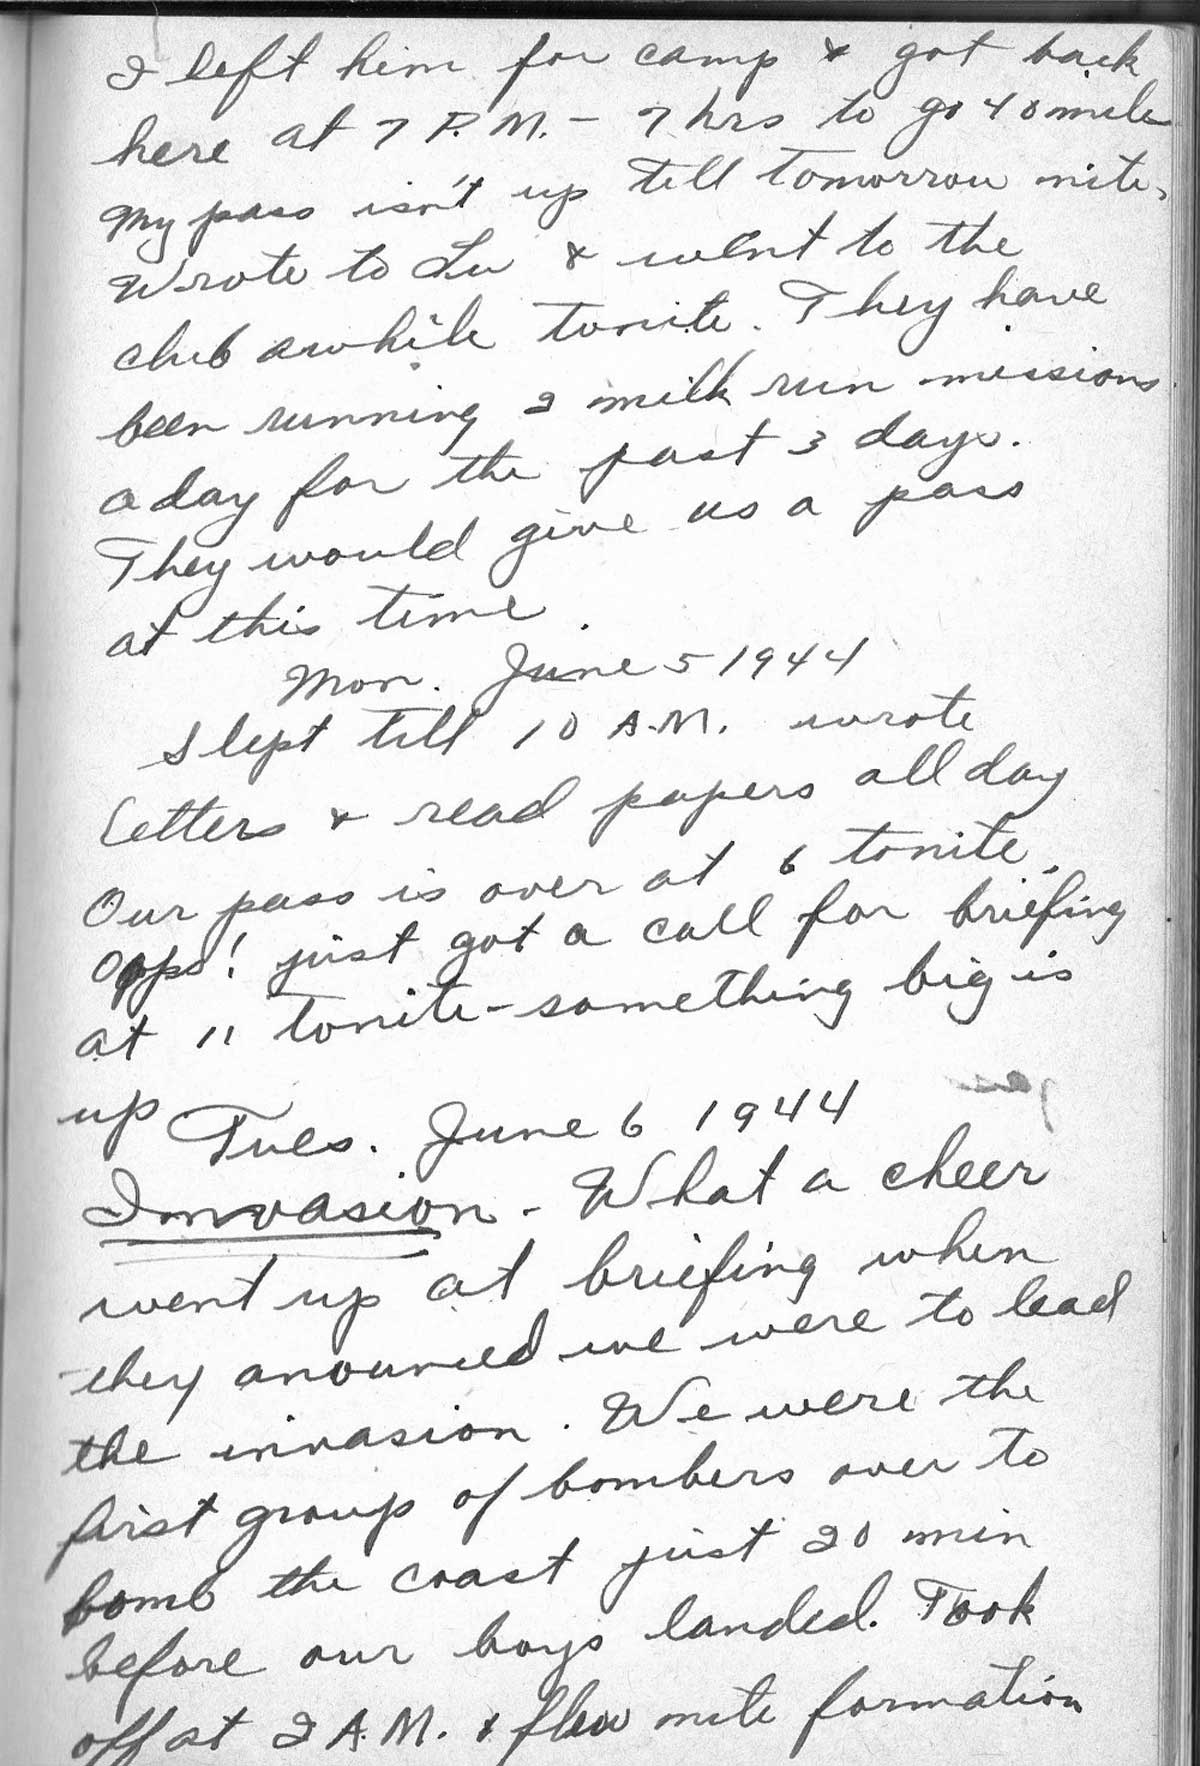 I left him for camp & got back
here at 7 P.M. - 7 hrs to go 40 mile
My pass isn't up till tomorrow nite.
Wrote to Lu & went to the
club awhile tonite. They have
been running 2 milk run missions
a day for the past 3 days.
They would give us a pass
at this time.
Mon. June 5 1944
Slept till 10 A.M. wrote
letters & read papers all day
Our pass is over at 6 tonite.
Opps! just got a call for briefing
at 11 tonite - something big is
up
Tues. June 6 1944
Invasion - What a cheer
went up at briefing when
they anounced we were to lead
the invasion. We were the
first group of bombers over to
bomb the coast just 20 min
before our boys landed. Took
off at 2 A.M. & flew nite formation